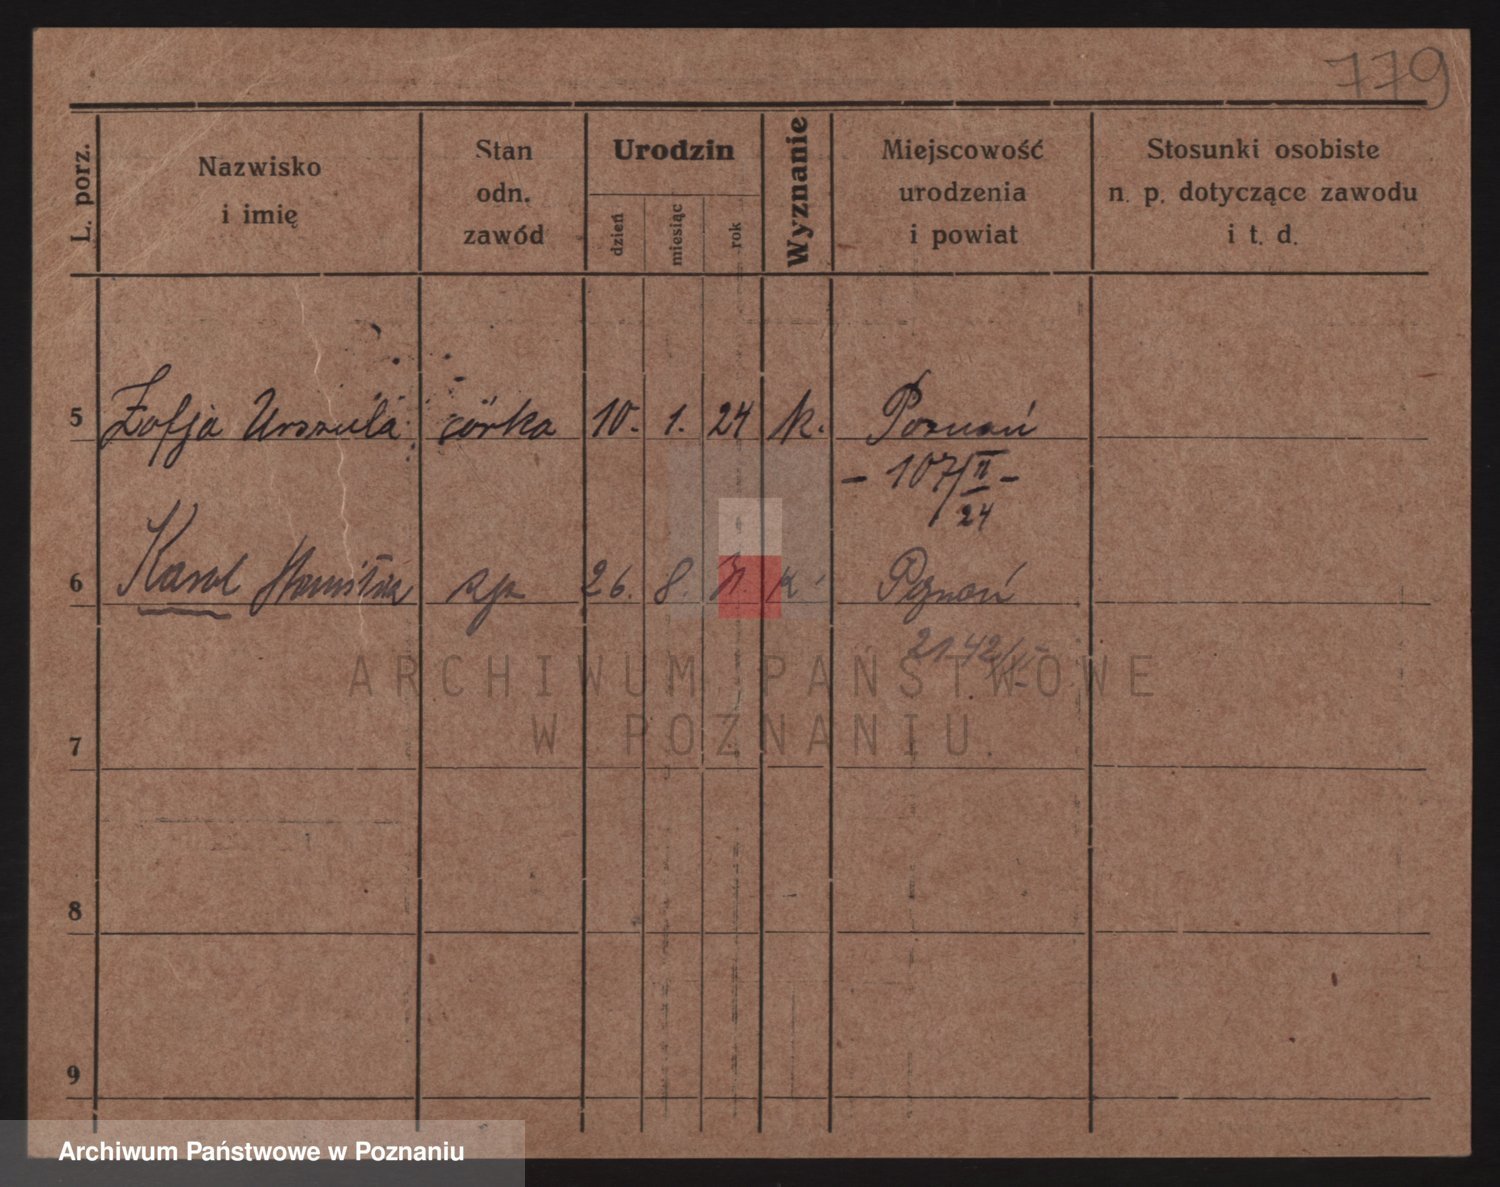 779
L. porz.
Nazwisko
i imię
Stan
odn.
zawód
Urodzin
dzień
miesiąc
rok
Wyznanie
Miejscowość
urodzenia
i powiat
Stosunki osobiste
n. p. dotyczące zawodu
i t. d.
5 Zofja Urszula córka 10. 1. 24 k. Poznań
- 107/II -
24
6 Karol 26. 8. k Poznań
2142/
7
8
9
ARCHIWUM PAŃSTWOWE
W POZNANIU
Archiwum Państwowe w Poznaniu